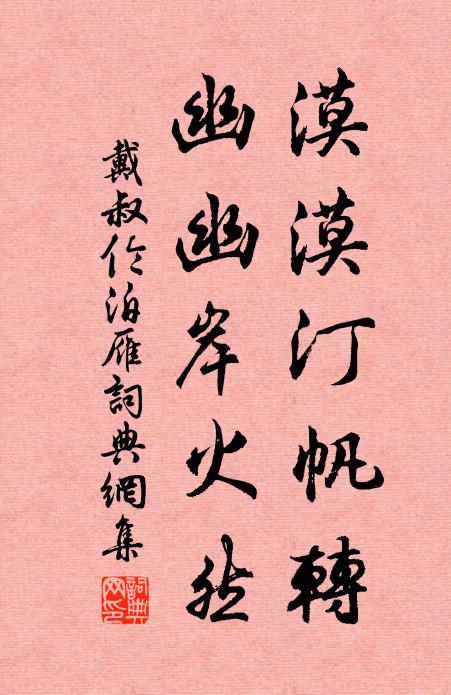 漠漠汀帆轉
幽幽岸火然
戴叔伦泊雁詞典網集
詞典网印